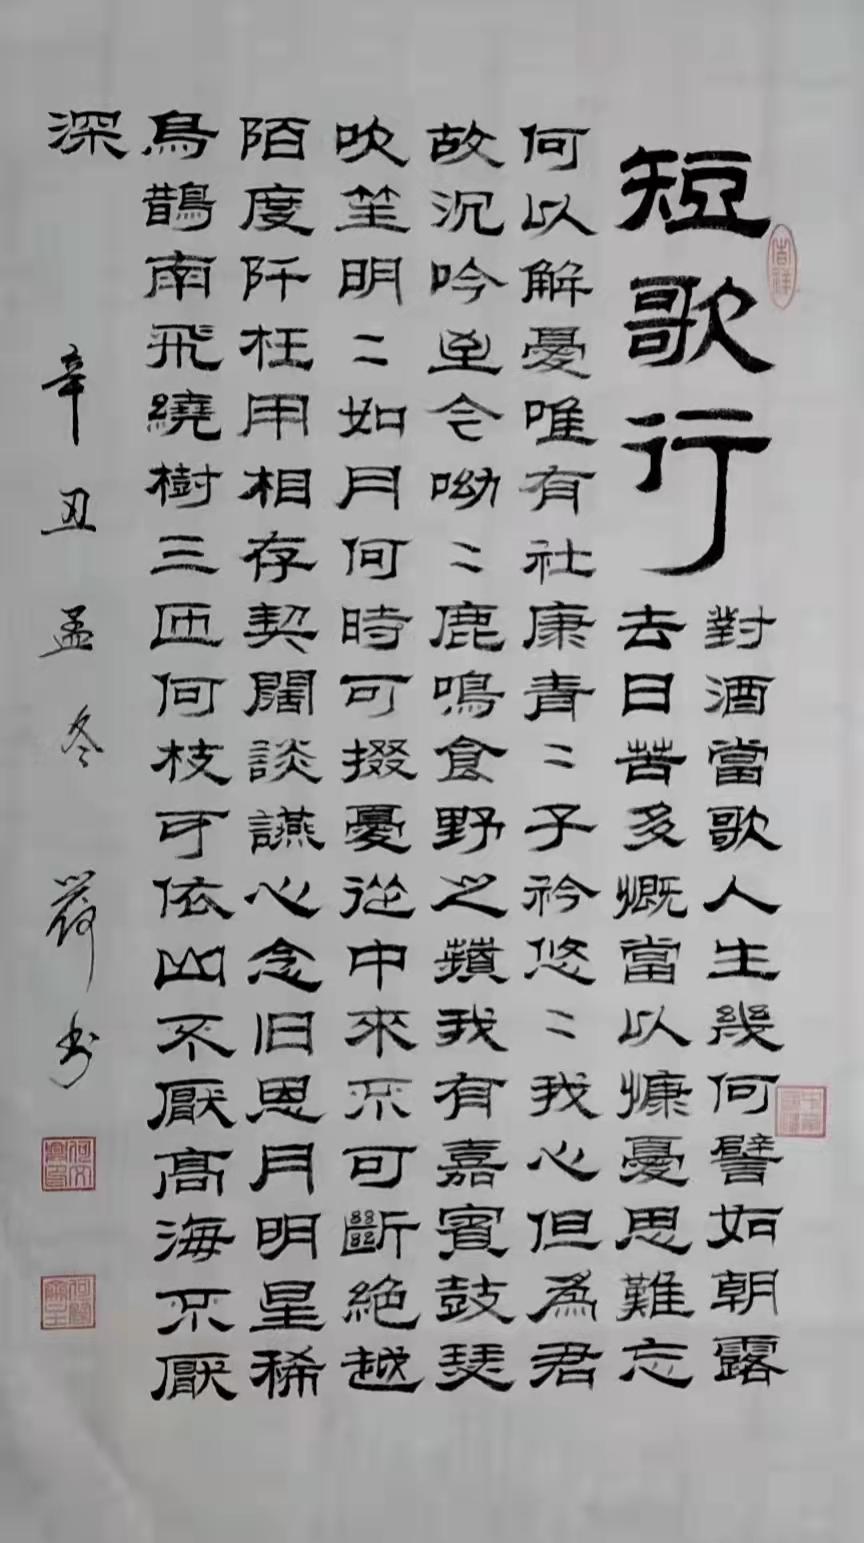 吉祥
短歌行
對酒當歌人生幾何譬如朝露
去日苦多慨當以慷憂思難忘
何以解憂唯有社康青〻子衿悠〻我心但為君
故沉吟至今呦〻鹿鳴食野之蘋我有嘉賓鼓瑟
吹笙明〻如月何時可掇憂從中來不可斷絕越
陌度阡枉用相存契闊談讌心念旧恩月明星稀
鳥鵲南飛繞樹三匝何枝可依山不厭高海不厭
深
辛丑孟冬 書